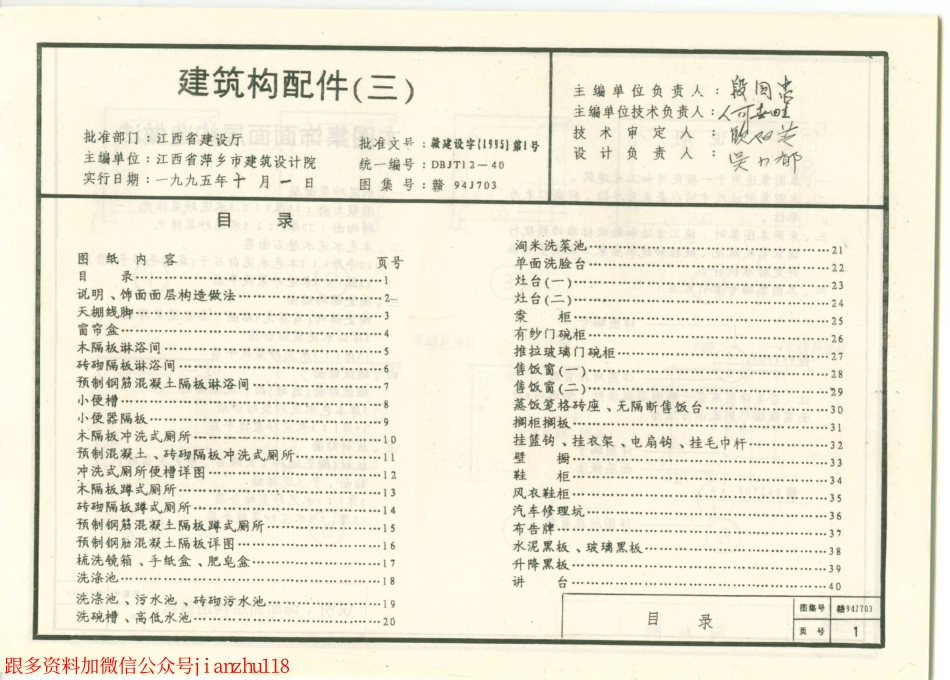 建筑构配件(三)
批准部门：江西省建设厅
主编单位：江西省萍乡市建筑设计院
实行日期：一九九五年十月一日
批准文号：赣建设字(1995)第1号
统一编号：DBJT12-40
图集号：赣 94J703
主编单位负责人：
主编单位技术负责人：
技术审定人：
设计负责人：
目 录
图纸内容 页号
目 录……1
说明、饰面面层构造做法……2
天棚线脚……3
窗帘盒……4
木隔板淋浴间……5
砖砌隔板淋浴间……6
预制钢筋混凝土隔板淋浴间……7
小便槽……8
小便器隔板……9
木隔板冲洗式厕所……10
预制混凝土、砖砌隔板冲洗式厕所……11
冲洗式厕所便槽详图……12
木隔板蹲式厕所……13
砖砌隔板蹲式厕所……14
预制钢筋混凝土隔板蹲式厕所……15
预制钢筋混凝土隔板详图……16
梳洗镜箱、手纸盒、肥皂盒……17
洗涤池……18
洗涤池、污水池、砖砌污水池……19
洗碗槽、高低水池……20
淘米洗菜池……21
单面洗脸台……22
灶台(一)……23
灶台(二)……24
案 柜……25
有纱门碗柜……26
推拉玻璃门碗柜……27
售饭窗(一)……28
售饭窗(二)……29
蒸饭笼格砖座、无隔断售饭台……30
搁柜搁板……31
挂篮钩、挂衣架、电扇钩、挂毛巾杆……32
壁 橱……33
鞋 柜……34
风衣鞋柜……35
汽车修理坑……36
布告牌……37
水泥黑板、玻璃黑板……38
升降黑板……39
讲 台……40
目 录
图集号 赣94J703
页 号 1
跟多资料加微信公众号jianzhu118